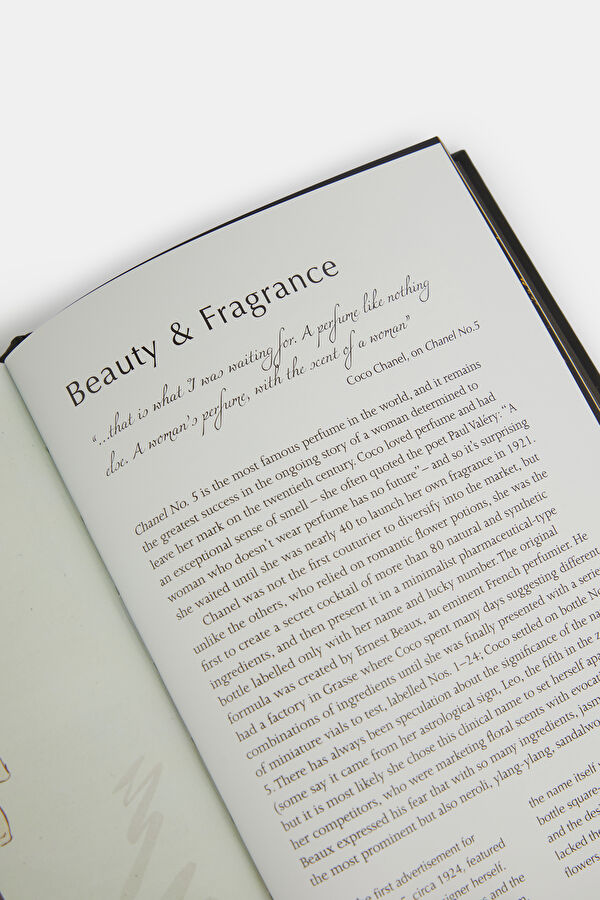 Beauty & Fragrance
“...that is what I was waiting for. A perfume like nothing
else. A woman’s perfume, with the scent of a woman”
Coco Chanel, on Chanel No.5
Chanel No. 5 is the most famous perfume in the world, and it remains
the greatest success in the ongoing story of a woman determined to
leave her mark on the twentieth century. Coco loved perfume and had
an exceptional sense of smell – she often quoted the poet Paul Valéry: “A
woman who doesn’t wear perfume has no future” – and so it’s surprising
she waited until she was nearly 40 to launch her own fragrance in 1921.
Chanel was not the first couturier to diversify into the market, but
unlike the others, who relied on romantic flower potions, she was the
first to create a secret cocktail of more than 80 natural and synthetic
ingredients, and then present it in a minimalist pharmaceutical-type
bottle labelled only with her name and lucky number. The original
formula was created by Ernest Beaux, an eminent French perfumier. He
had a factory in Grasse where Coco spent many days suggesting different
combinations of ingredients until she was finally presented with a
of miniature vials to test, labelled Nos. 1–24; Coco settled on bottle
5. There has always been speculation about the significance of the
(some say it came from her astrological sign, Leo, the fifth in the
but it is most likely she chose this clinical name to set herself
her competitors, who were marketing floral scents with
Beaux expressed his fear that with so many ingredients,
the most prominent but also neroli, ylang-ylang,
the first advertisement for
5, circa 1924, featured
herself.
and the
the name itself
bottle
and the
lacked
flowers